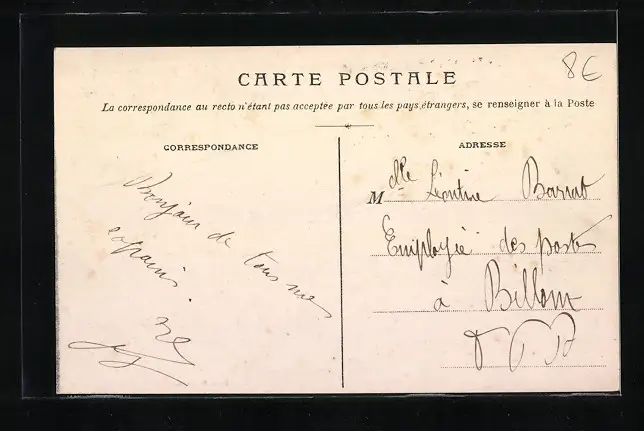 8€
CARTE POSTALE
La correspondance au recto n'étant pas acceptée par tous les pays étrangers, se renseigner à la Poste
CORRESPONDANCE
ADRESSE
Bonjour de tous nos
copains
Mlle Léontine Barrat
Employée des postes
à Billom